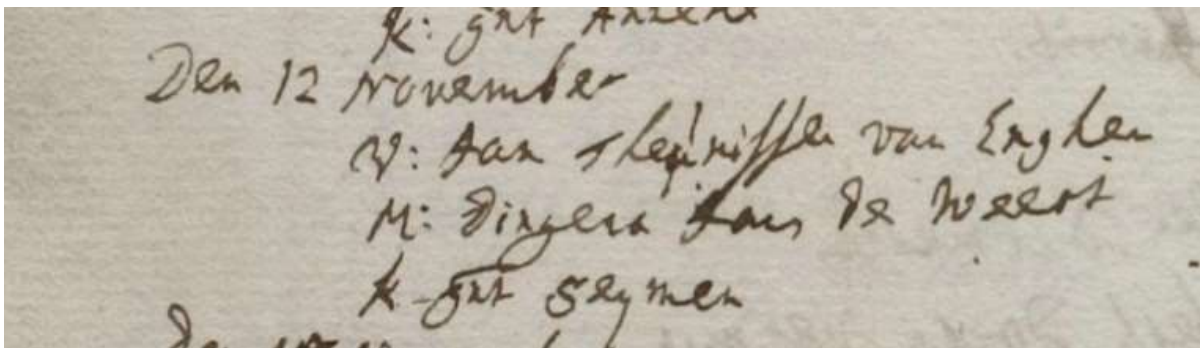 K: gnt Anneke
Den 12 November
V: Jan Theunissen van Enghen
M: Dingena Jans de Weert
K gnt Seymen